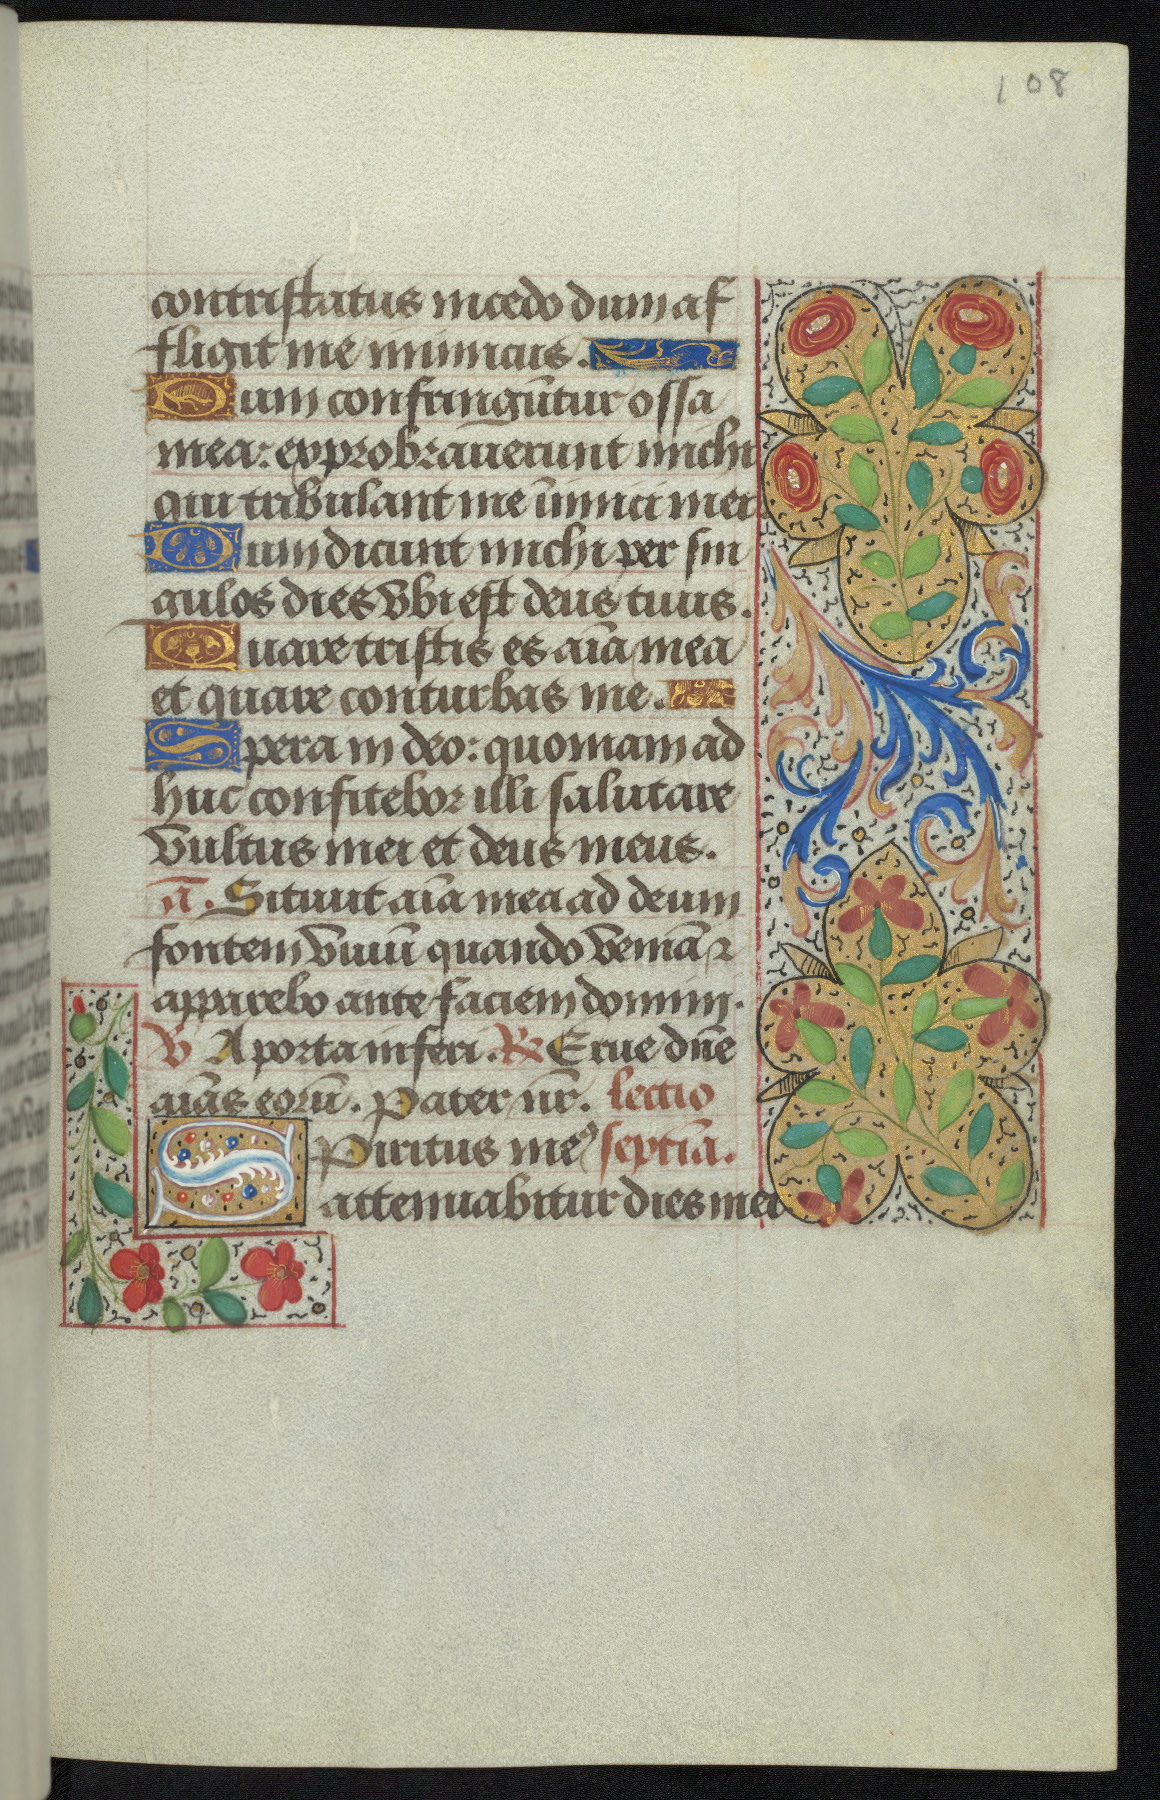 108
contristatus incedo dum af
fligit me inimicus.
Dum confringūtur ossa
mea: exprobraverunt michi
qui tribulant me inimici mei.
Dum dicunt michi per sin
gulos dies ubi est deus tuus.
Quare tristis es aīa mea
et quare conturbas me.
Spera in deo: quoniam ad
huc confitebor illi salutare
vultus mei et deus meus.
ā. Sitivit aīa mea ad deum
fontem vivū quando veniā ⁊
apparebo ante faciem domini.
℣ A porta inferi. ℟ Erue dn̄e
aīas eorū. Pater nr̄. lectio
Spiritus meꝰ septīa.
attenuabitur dies mei